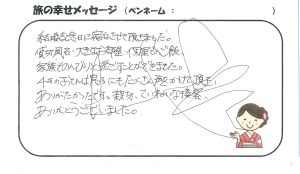 旅の幸せメッセージ（ペンネーム：　　　）
結婚記念日に宿泊させて頂きました。
貸切風呂・大きなお部屋・個室で夕飯、
家族でのんびりと過ごすことができました。
4才の子さんは
にもたくさん声をかけて頂き、
ありがたかったです。親切、ていねいな接客、
ありがとうございました。